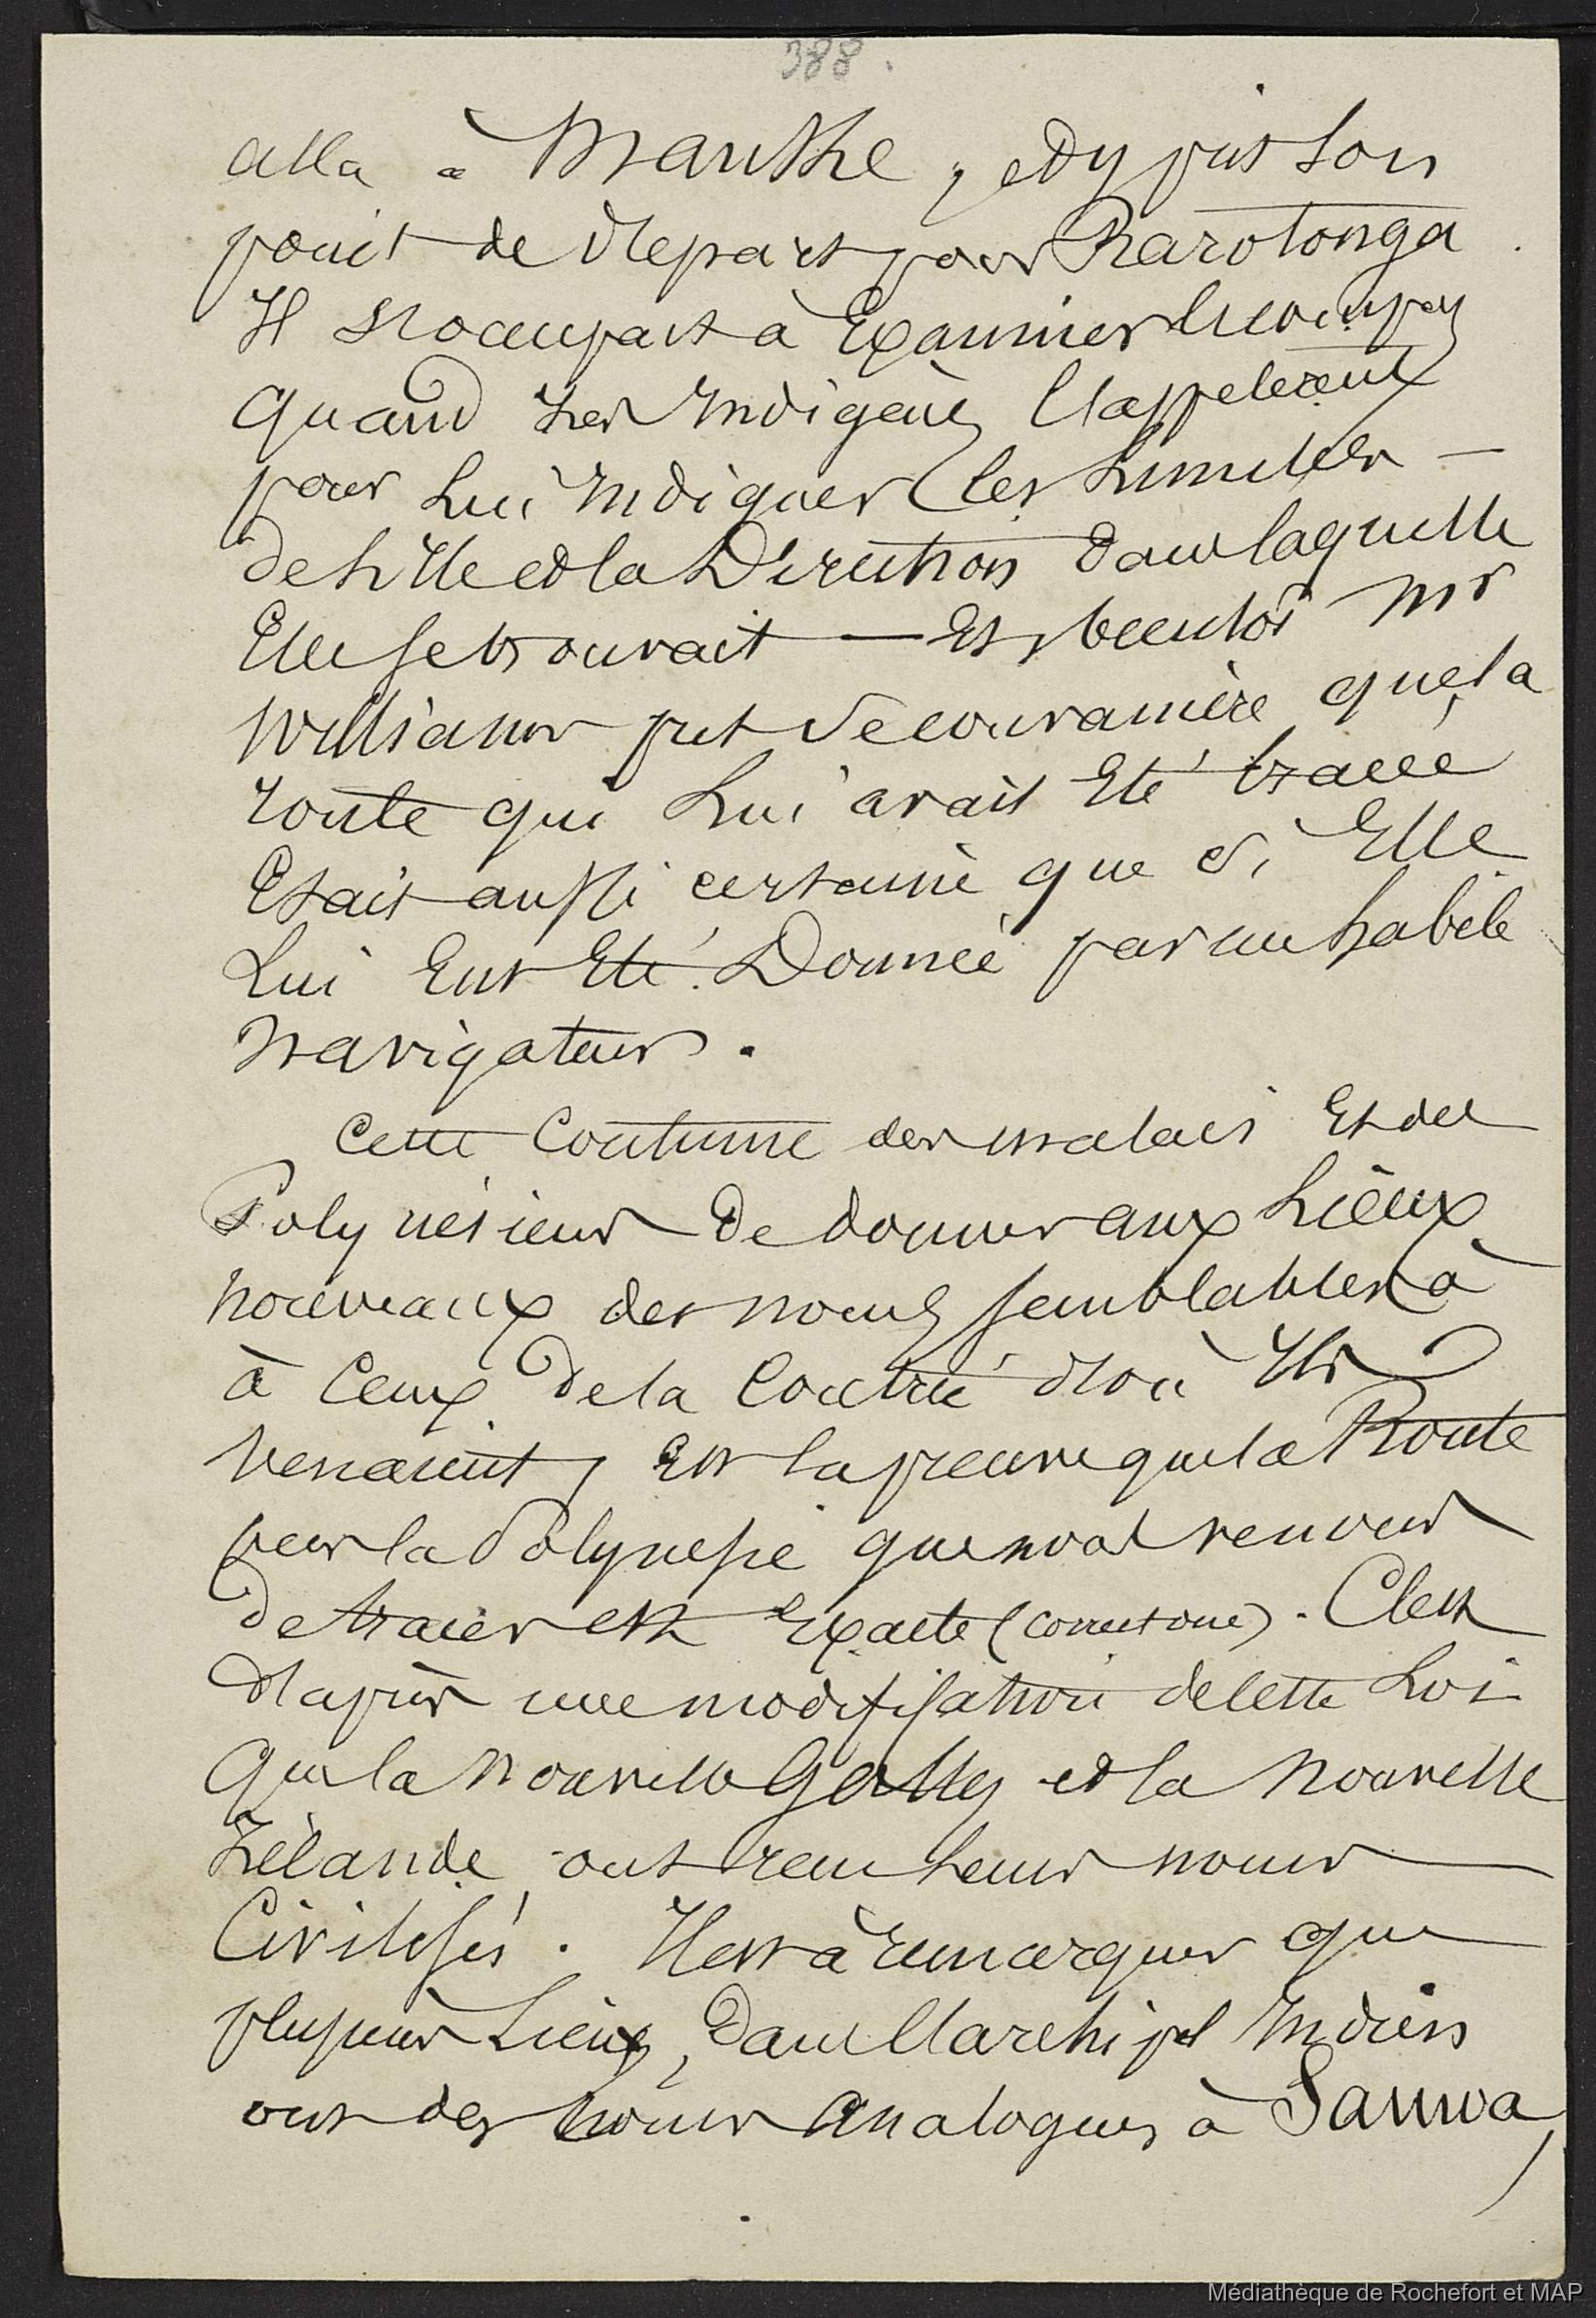 388.
alla à Manthe, et y prit son
point de départ pour Rarotonga.
Il s'occupait à Examiner le
quand les Indigènes l'appelèrent
pour Lui Indiquer les Limites —
de L'Ile et la Direction dans laquelle
Elle se trouvait — Et bientôt Mr
Williams put se convaincre que la
route qui Lui avait Eté tracée
Etait aussi certaine que si Elle
Lui Eut Eté Donnée par un habile
Navigateur.
Cette Coutume des malais Et des
Polynésiens De donner aux Lieux
nouveaux des noms semblables à
à Ceux de la Contrée d'où Ils
venaient, Est la preuve que la Route
vers la Polynésie que nous venons
De tracer est Exacte (correctone). C'est
d'après une modification de cette Loi
Que la Nouvelle Galles et la Nouvelle
Zélande ont reçu Leurs noms
Civilisés. Il est à remarquer que
plusieurs Lieux, Dans l'archipel Indien
ont des noms Analogues à Samoa,
Médiathèque de Rochefort et MAP